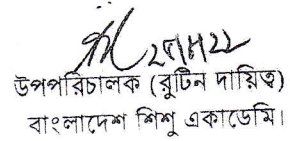 উপপরিচালক (রুটিন দায়িত্ব)
বাংলাদেশ শিশু একাডেমি।